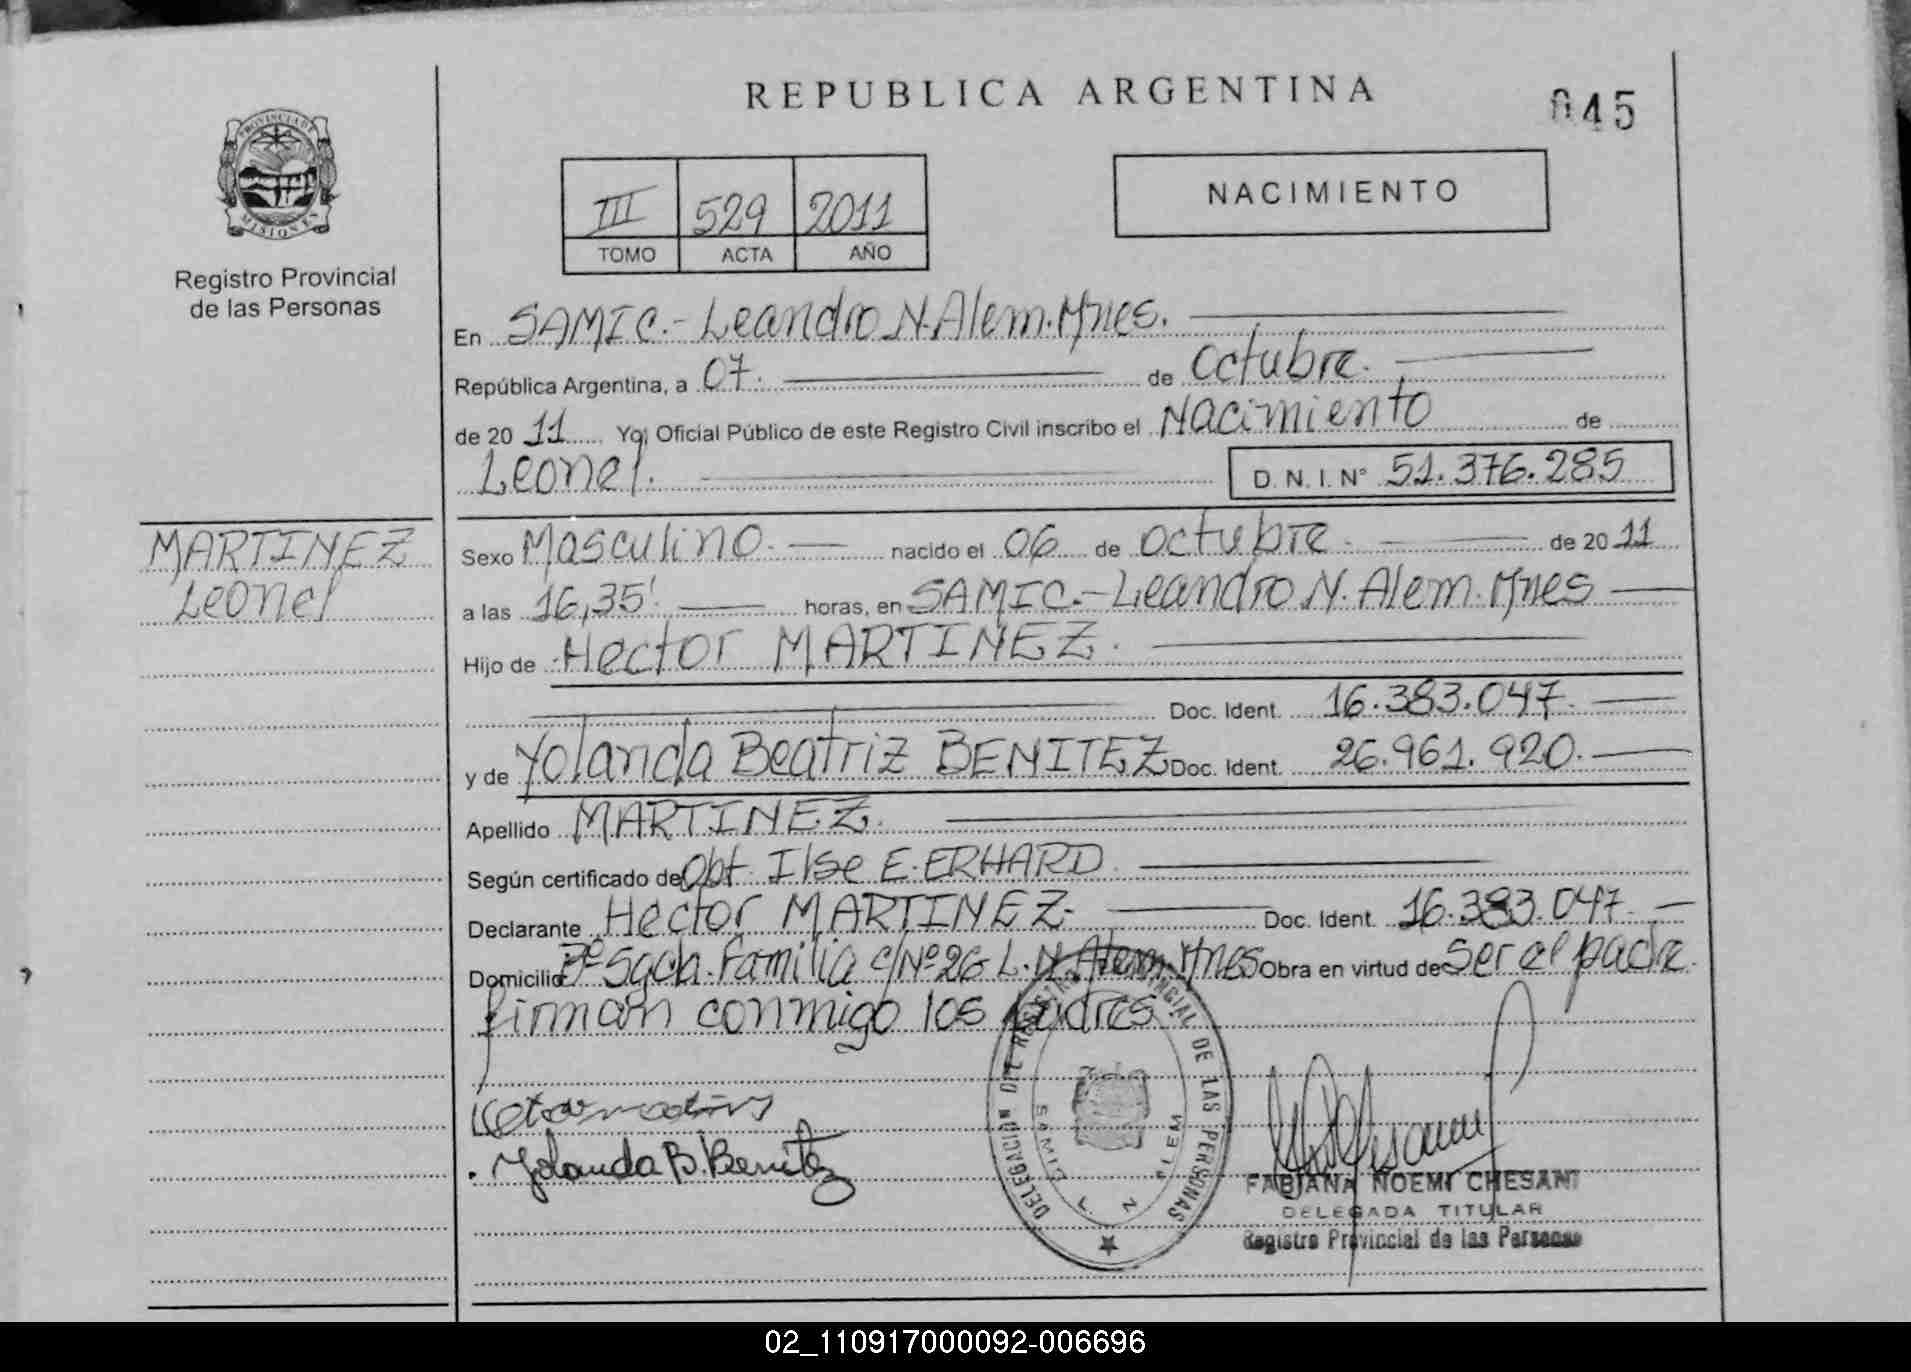 REPUBLICA ARGENTINA
045
PROVINCIA DE
MISIONES
Registro Provincial
de las Personas
III 529 2011
TOMO ACTA AÑO
NACIMIENTO
En SAMIC.- Leandro N. Alem. Mnes.
República Argentina, a 07. de Octubre.
de 20 11 Yo, Oficial Público de este Registro Civil inscribo el Nacimiento de
Leonel. D. N. I. N° 51.376.285
MARTINEZ
Leonel
Sexo Masculino. nacido el 06 de octubre. de 20 11
a las 16,35' horas, en SAMIC.- Leandro N. Alem. Mnes
Hijo de Hector MARTINEZ.
Doc. Ident. 16.383.047.
y de Yolanda Beatriz BENITEZ Doc. Ident. 26.961.920.
Apellido MARTINEZ.
Según certificado de Obt. Ilse E. ERHARD
Declarante Hector MARTINEZ. Doc. Ident. 16.383.047.
Domicilio Bº Sgda. Familia c/Nº 26 L. N. Alem. Mnes Obra en virtud de ser el padre.
firman conmigo los padres
Yolanda B. Benitez
DELEGACION DEL REGISTRO PROVINCIAL DE LAS PERSONAS
SAMIC L. N. ALEM
FABIANA NOEMI CHESANI
DELEGADA TITULAR
Registro Provincial de las Personas
02_110917000092-006696